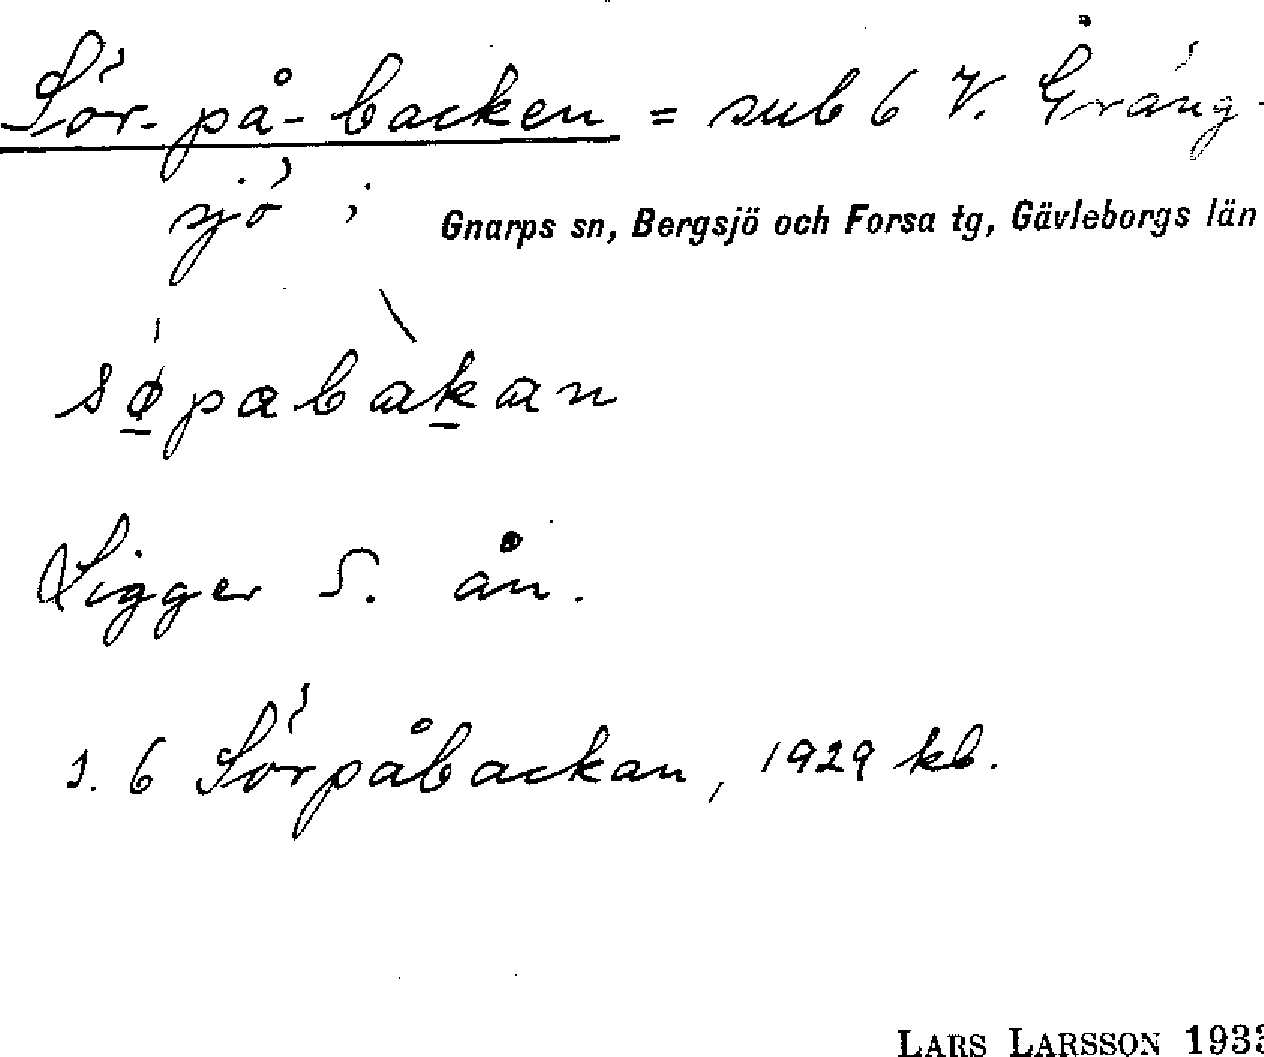 Sör-på-backen = sub 6 V. Gräng-
sjö i
Gnarps sn, Bergsjö och Forsa tg, Gävleborgs län
søpabakan
Ligger S. ån.
s. 6 Sörpåbackan, 1929 kb.
LARS LARSSON 1933